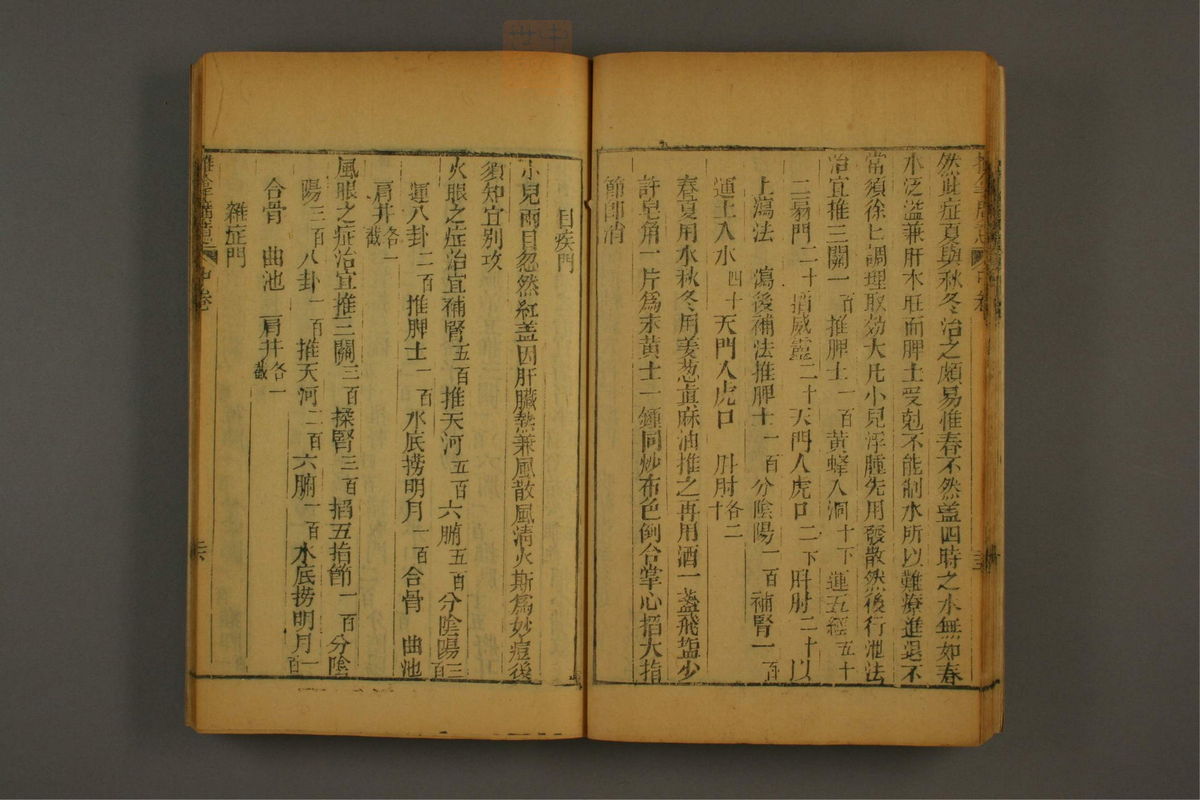 然此症夏與秋冬治之頗易惟春不然盖四時之水無如春
水泛濫兼肝木旺而脾土受尅不能制水所以難療進退不
常須徐匕調理取効大凡小兒浮腫先用發散然後行泄法
治宜推三關一百推脾土一百黄蜂入洞十下運五經五十
二扇門二十掐威靈二十天門入虎口二下肝肘二十以
上瀉法 瀉後補法推脾土一百分陰陽一百補腎一百
運土入水四十天門入虎口 肝肘各二十
春夏用水秋冬用姜葱真麻油推之再用酒一盞飛塩少
許皂角一片爲末黄土一鍾同炒布包倒合掌心掐大指
節即消
目疾門
小兒兩目忽然紅盖因肝臓熱兼風散風清火斯爲妙痘後
須知宜别攻
火眼之症治宜補腎五百推天河五百六腑五百分陰陽三百
運八卦二百推脾土一百水底撈明月一百合骨 曲池
肩井各一截
風眼之症治宜推三關三百揉腎三百掐五指節一百分陰
陽三百八卦一百推天河二百六腑一百水底撈明月一百
合骨 曲池 肩井各一截
雜症門
中卷